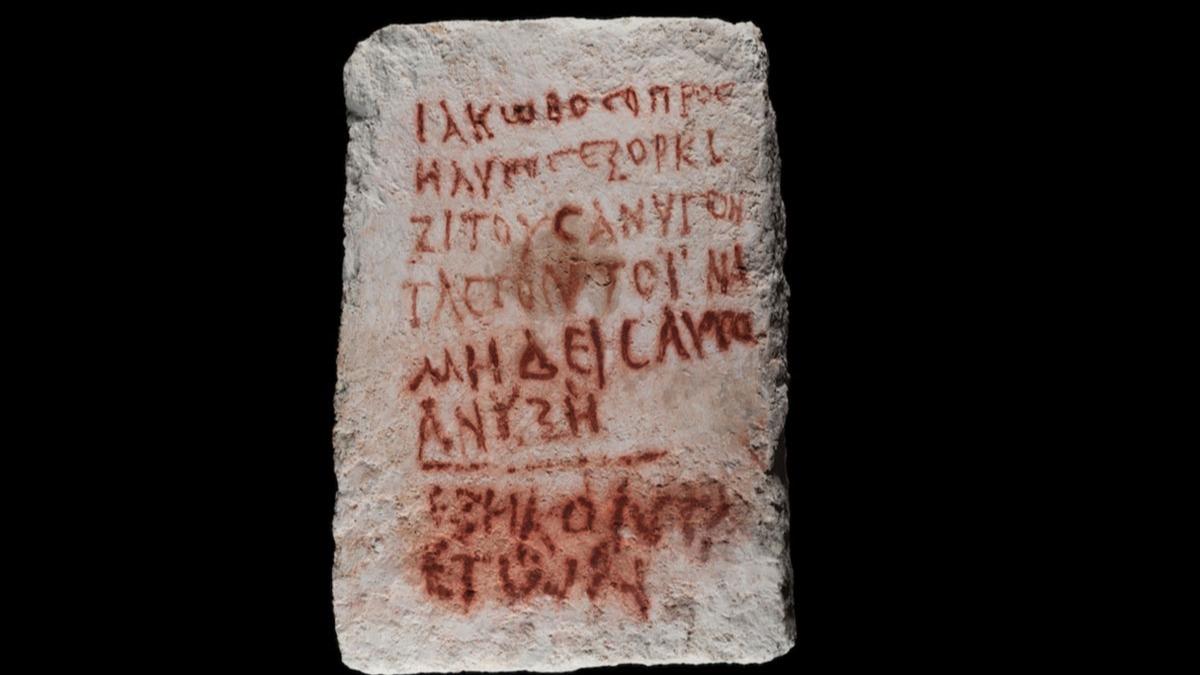 ΙΑΚΩΒΟCΟΠΡΟC
ΗΛΥΤ ΕΞΟΡΚΙ
ΖΙΤΟΥCΑΝΥΓΟΝ
ΤΑCΤΟΥΤΟΪΝΑ
ΜΗΔΕΙCΑΥΤΟ
ΑΝΥΞΗ
ΕΞΗΚΟΝΤΑ
ΕΤΩΝ